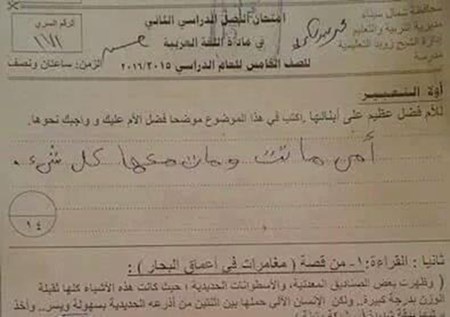 محافظة شمال سيناء
مديرية التربية والتعليم
إدارة الشيخ زويد التعليمية
مدرسة
امتحان الفصل الدراسي الثاني
في مادة اللغة العربية
للصف الخامس للعام الدراسي ٢٠١٦/٢٠١٥
الرقم السري
الزمن: ساعتان ونصف
أولا التعبير
للأم فضل عظيم على أبنائها. اكتب في هذا الموضوع موضحا فضل الأم عليك و واجبك نحوها.
أمى ماتت ومات معها كل شئ.
١٤
ثانيا : القراءة: ١- من قصة ( مغامرات في أعماق البحار ) :
( وظهرت بعض الصناديق المعدنية، والأسطوانات الحديدية ؛ حيث كانت هذه الأشياء كلها ثقيلة
الوزن بدرجة كبيرة.. ولكن الإنسان الآلي حملها بين اثنتين من أذرعه الحديدية بسهولة ويسر.. وأخذ